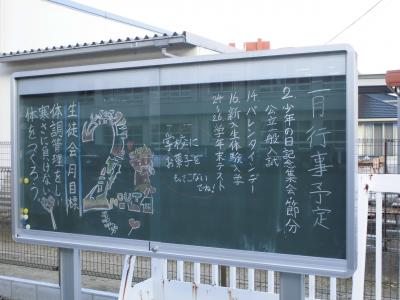 二月行事予定
2. 少年の日記念集会 節分
公立一般入試
14. バレンタインデー
16. 新入生体験入学
24~26. 学年末テスト
学校に
お菓子を
もってこない
でね!
2
生徒会月目標
体調管理をしい
寒さに負けない
体をつくろう。